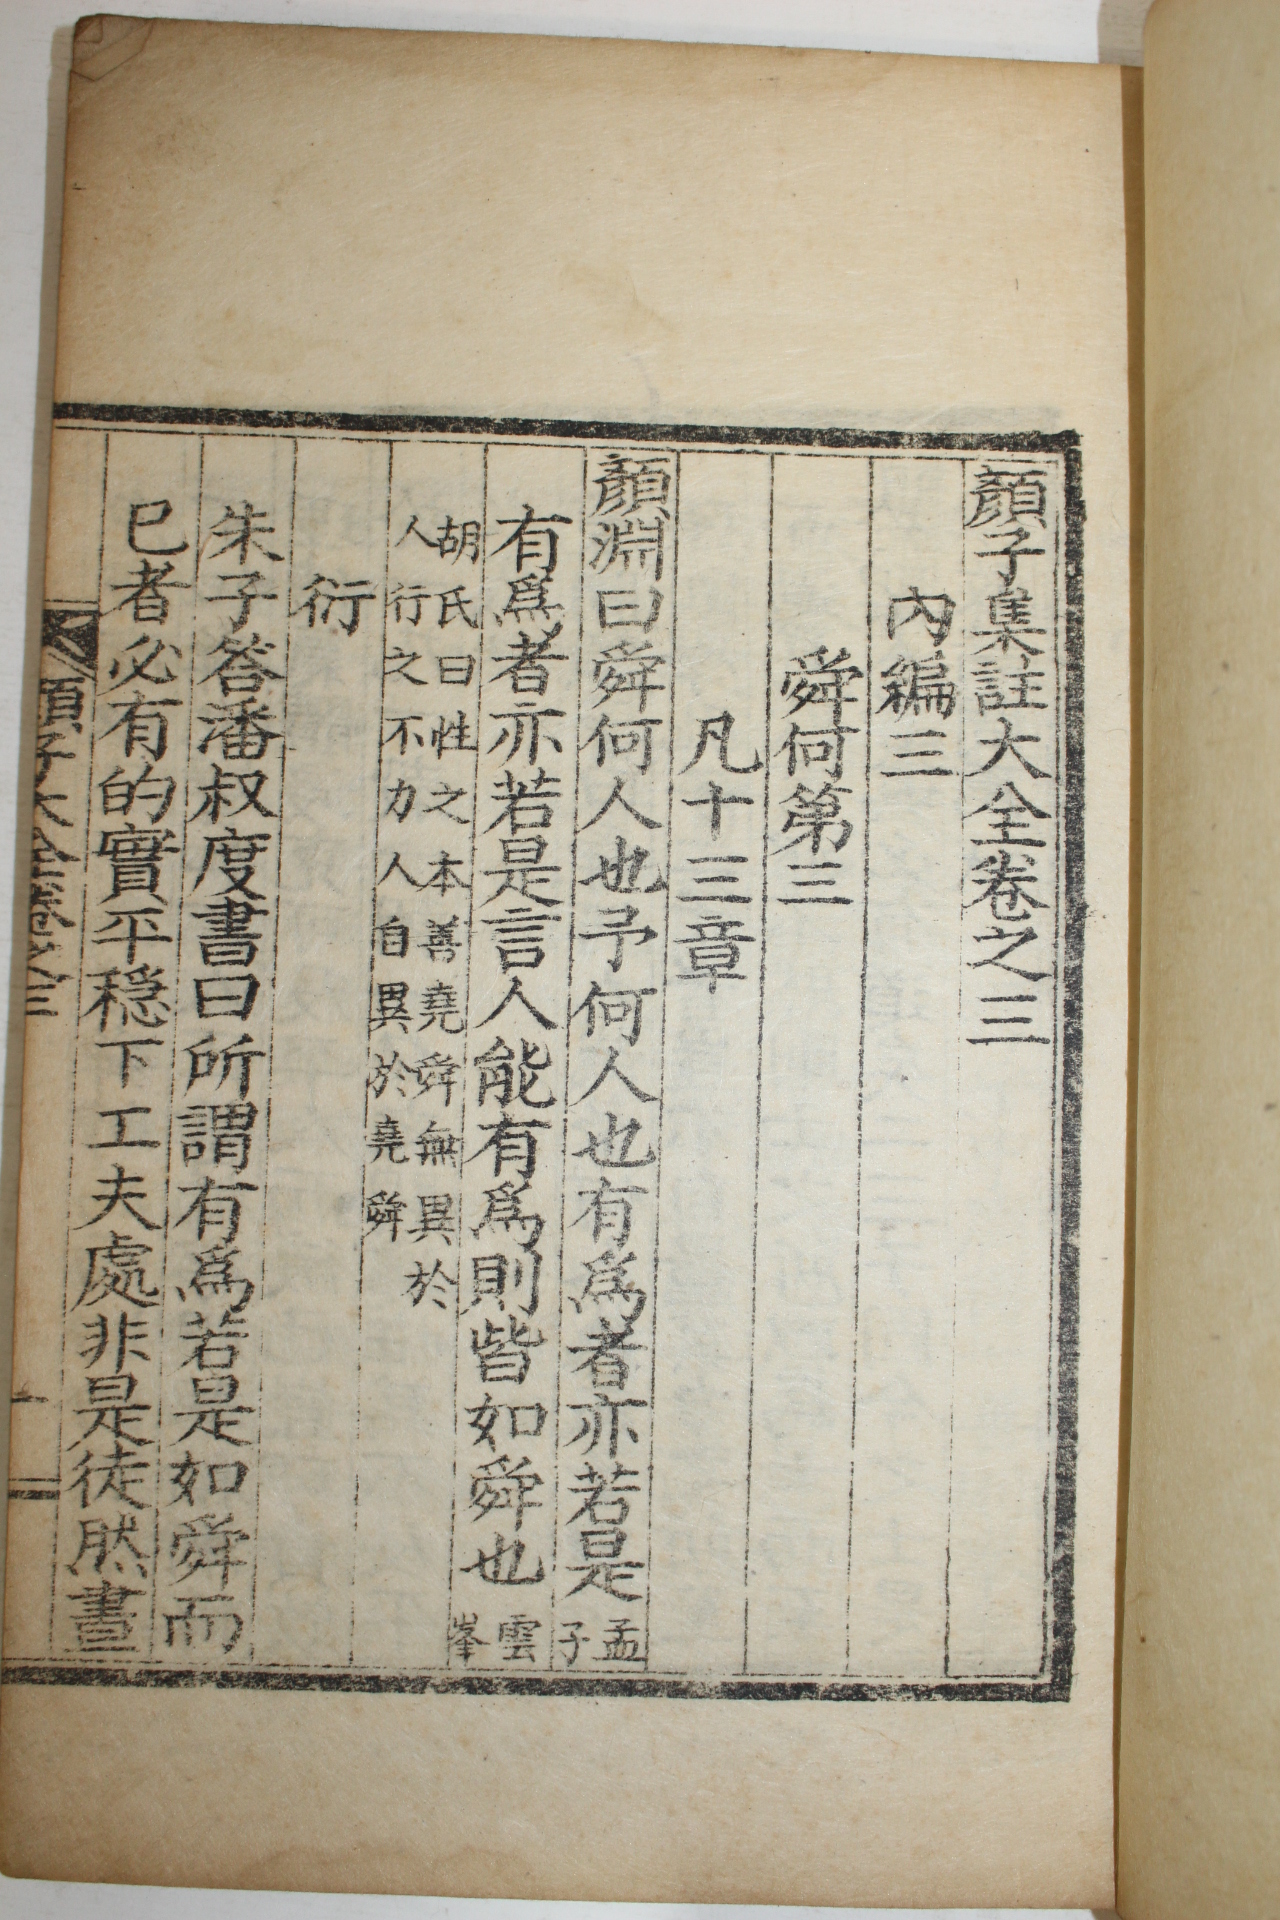 顔子集註大全卷之三
內編三
舜何第三
凡十三章
顔淵曰舜何人也予何人也有爲者亦若是孟子
有爲者亦若是言人能有爲則皆如舜也雲峯
胡氏曰性之本善堯舜無異於
人行之不力人自異於堯舜
衍
朱子答潘叔度書曰所謂有爲若是如舜而
已者必有的實平穩下工夫處非是徒然晝
顔子大全卷之三
一